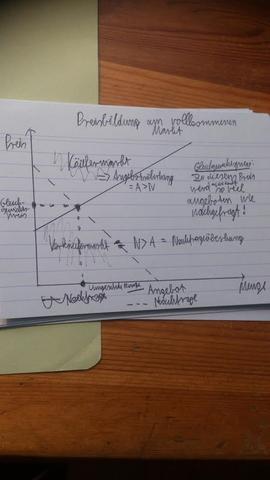 Preisbildung am vollkommenen
Markt
Preis
Käufermarkt
=> Angebotsüberhang
= A > N
Gleichgewichtspreis:
Zu diesem Preis
wird genau so viel
angeboten wie
nachgefragt!
Gleich-
gewichts-
preis
Verkäufermarkt
N > A = Nachfrageüberhang
Menge
Angebot
Nachfrage